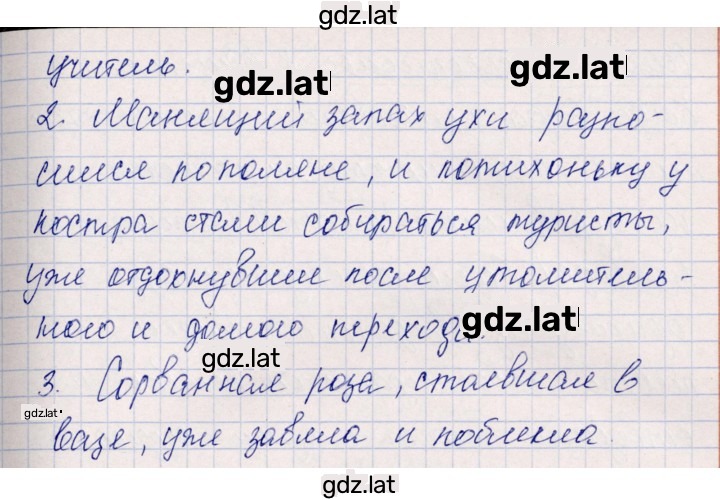 gdz.lat
учитель.
gdz.lat
gdz.lat
2. Манящий запах ухи разно-
сился по поляне, и потихоньку у
костра стали собираться туристы,
уже отдохнувшие после утомитель-
ного и долгого перехода.
gdz.lat
gdz.lat
3. Сорванная роза, стоявшая в
gdz.lat
вазе, уже завяла и поблекла.
gdz.lat